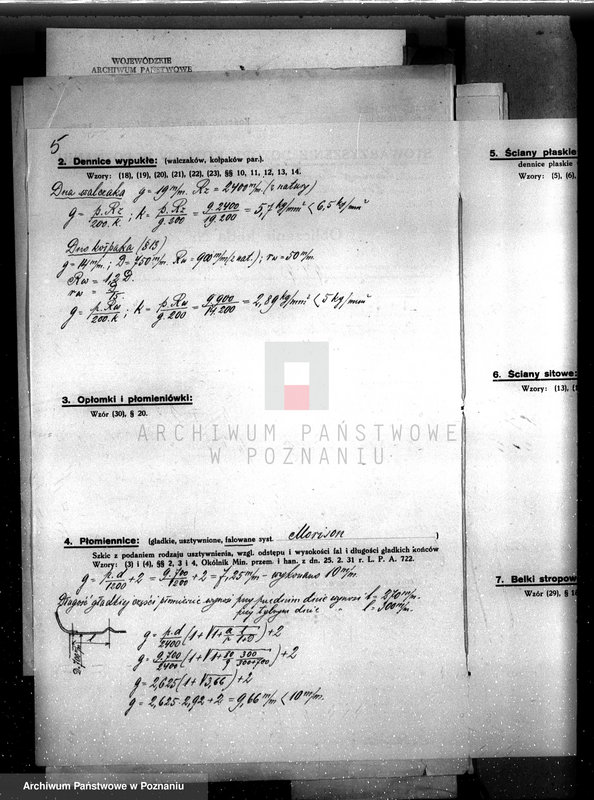 WOJEWÓDZKIE
ARCHIWUM PAŃSTWOWE
5
2. Dennice wypukłe: (walczaków, kołpaków par.).
Wzory: (18), (19), (20), (21), (22), (23), §§ 10, 11, 12, 13, 14.
Dna walczaka g = 19 m/m. Rz = 2400 m/m (z natury)
g = p.Rz/200.k ; k = p.Rz/g.200 = 9.2400/19.200 = 5,7 kg/mm² < 6,5 kg/mm²
Dno kołpaka (§13)
g = 14 m/m.; D = 750 m/m. Rw = 900 m/m (z nat.); rw = 50 m/m.
Rw = 1,2 D.
rw =
g = p.Rw/200.k ; k = p.Rw/g.200 = 9.900/14.200 = 2,89 kg/mm² < 5 kg/mm²
3. Opłomki i płomieniówki:
Wzór (30), § 20.
ARCHIWUM PAŃSTWOWE
W POZNANIU
4. Płomiennice: (gładkie, usztywnione, falowane syst. Morison )
Szkic z podaniem rodzaju usztywnienia, wzgl. odstępu i wysokości fal i długości gładkich końców
Wzory: (3) i (4), §§ 2, 3 i 4, Okólnik Min. przem. i han. z dn. 25. 2. 31 r. L. P. A. 722.
g = p.d/1200 + 2 = 9.700/1200 + 2 = 7,25 m/m - wykonano 10 m/m.
Długość gładkiej części płomienic wynosi przy przednim dnie wynosi l = 270 m/m.
przy tylnym dnie " l = 300 m/m.
g = p.d/2400 (1 + √1 +
g = 9.700/2400 (1 + √1 +
g = 2,625 (1 + √3,66) + 2
g = 2,625 . 2,92 + 2 = 9,66 m/m < 10 m/m.
5. Ściany płaskie
dennice płaskie
Wzory: (5), (6),
6. Ściany sitowe:
Wzory: (13),
7. Belki stropow
Wzór (29), § 18
Archiwum Państwowe w Poznaniu